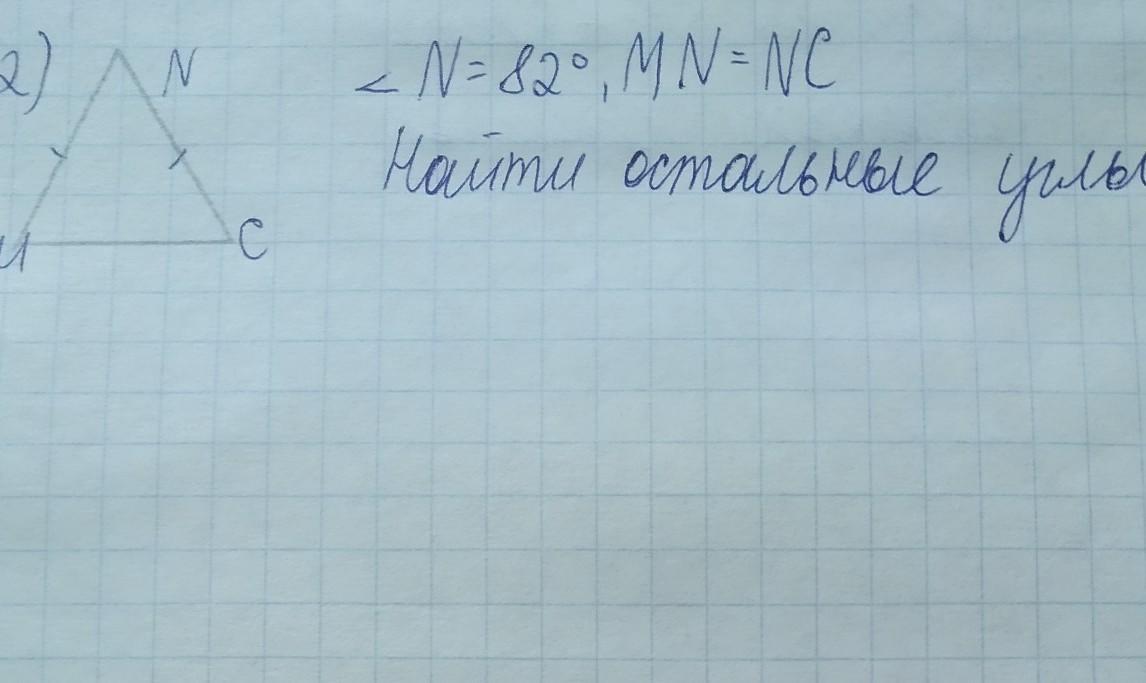 2) N ∠ N = 82°, MN = NC
Найти остальные углы
M C